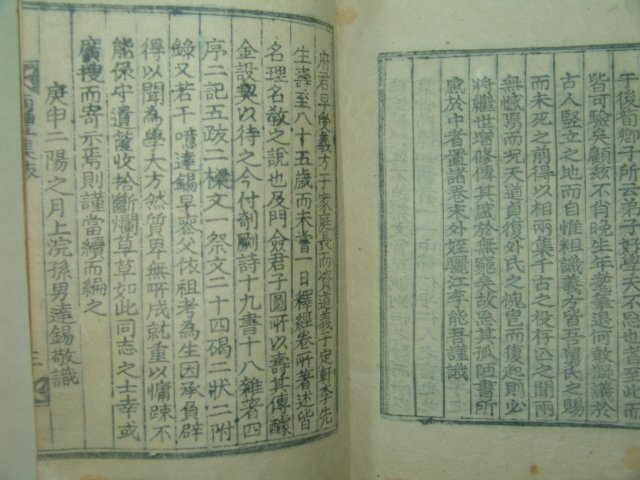 于後荀卿子所云弟子好學天不忘也
皆可驗矣顧玆不肖晩生年耄葦退何敢擬義於
古人竪立之地而自惟粗識義方皆吾舅氏之賜
而未死之前得以相兩集千古之役存亡之間兩
無憾焉而況天道貞復外氏之槐邑而復起則必
將繼世增修傳其盛於無窮矣故忘其孤陋書所
感於中者啚諸卷末外姪驪江李能吾謹識
府君早學義方于家庭長而資道義于定軒李先
生壽至八十五歲而未嘗一日釋經卷所著述皆
名理名敬之說也及門僉君子圖所以壽其傳醵
金設契以待之今付剞劂詩十九書十八雜著四
序二記五跋二樑文一祭文二十四碣二狀二附
錄又若干噫達錫早喪父依祖考為生因承負辟
得以聞為學大方然質卑無所成就重以慵踈不
能保守遺篋收拾斷爛草草如此同志之士幸或
廣搜而寄示焉則謹當續而編之
庚申二陽之月上浣孫男達錫敬識